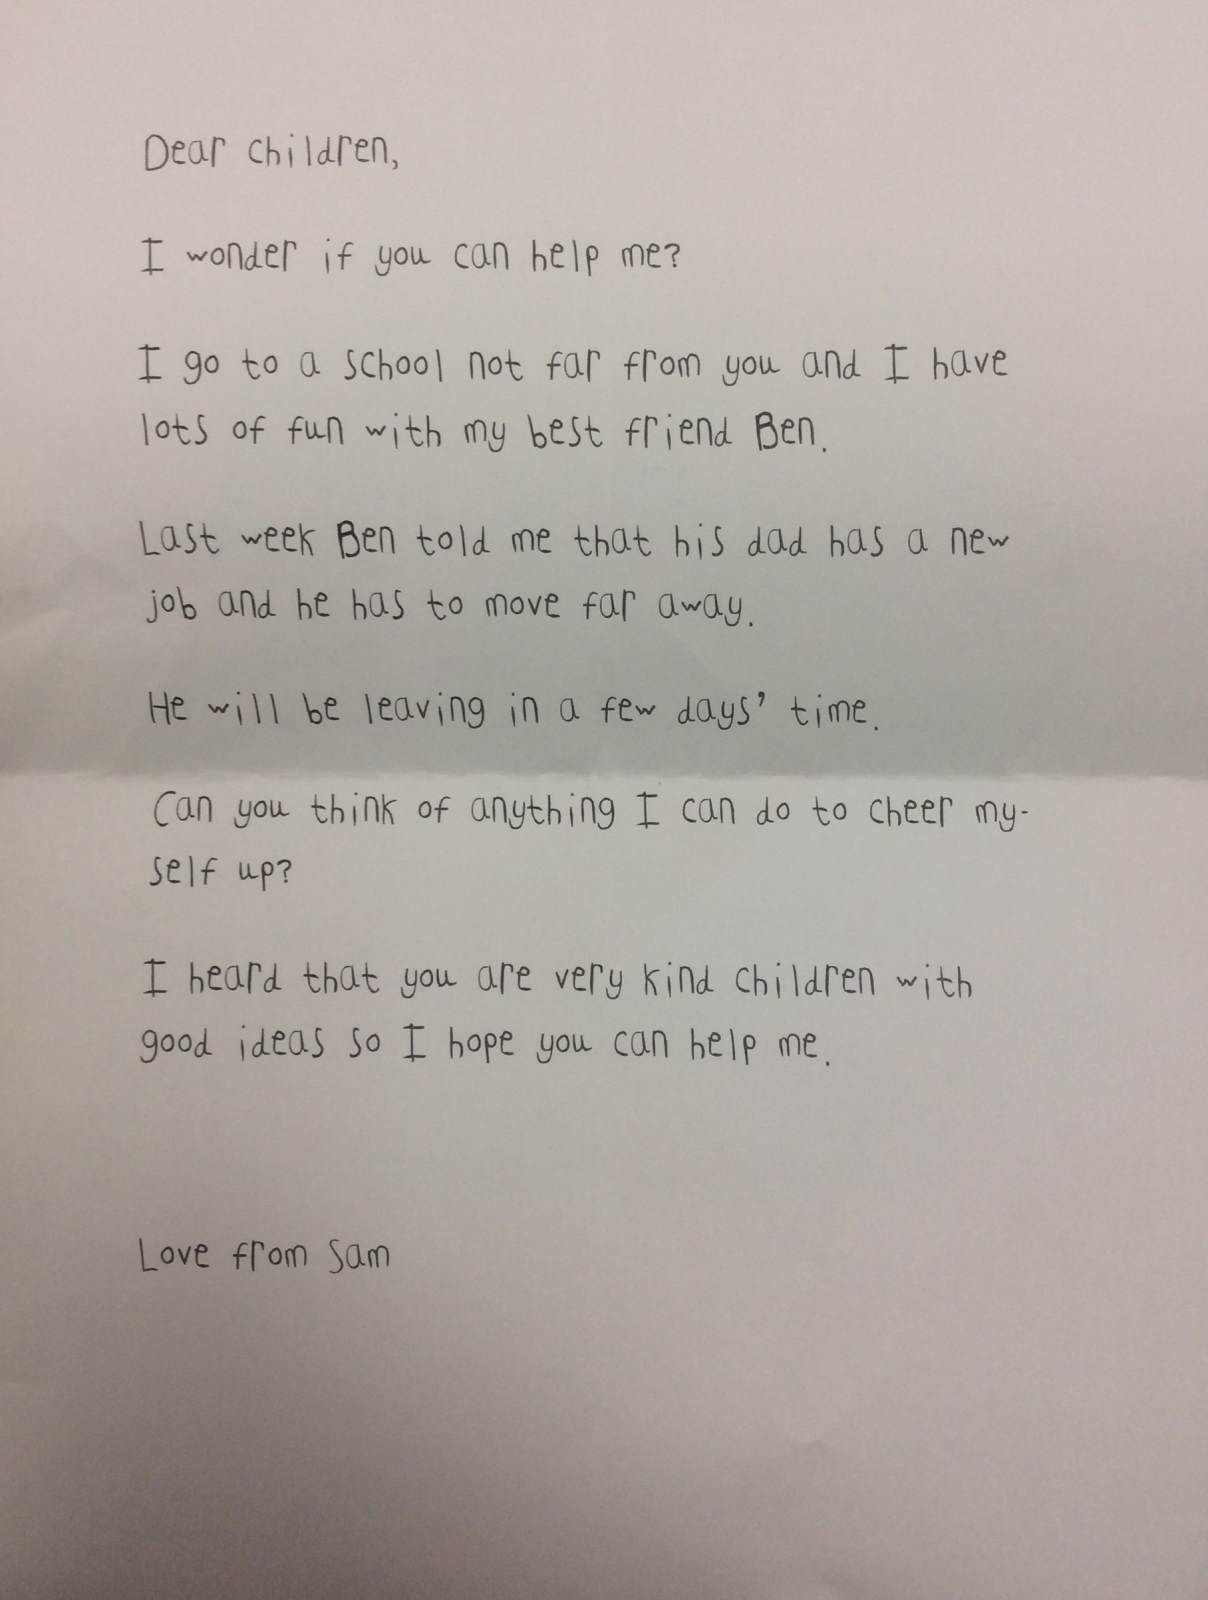 Dear children,
I wonder if you can help me?
I go to a school not far from you and I have
lots of fun with my best friend Ben.
Last week Ben told me that his dad has a new
job and he has to move far away.
He will be leaving in a few days' time.
Can you think of anything I can do to cheer my-
self up?
I heard that you are very kind children with
good ideas so I hope you can help me.
Love from Sam